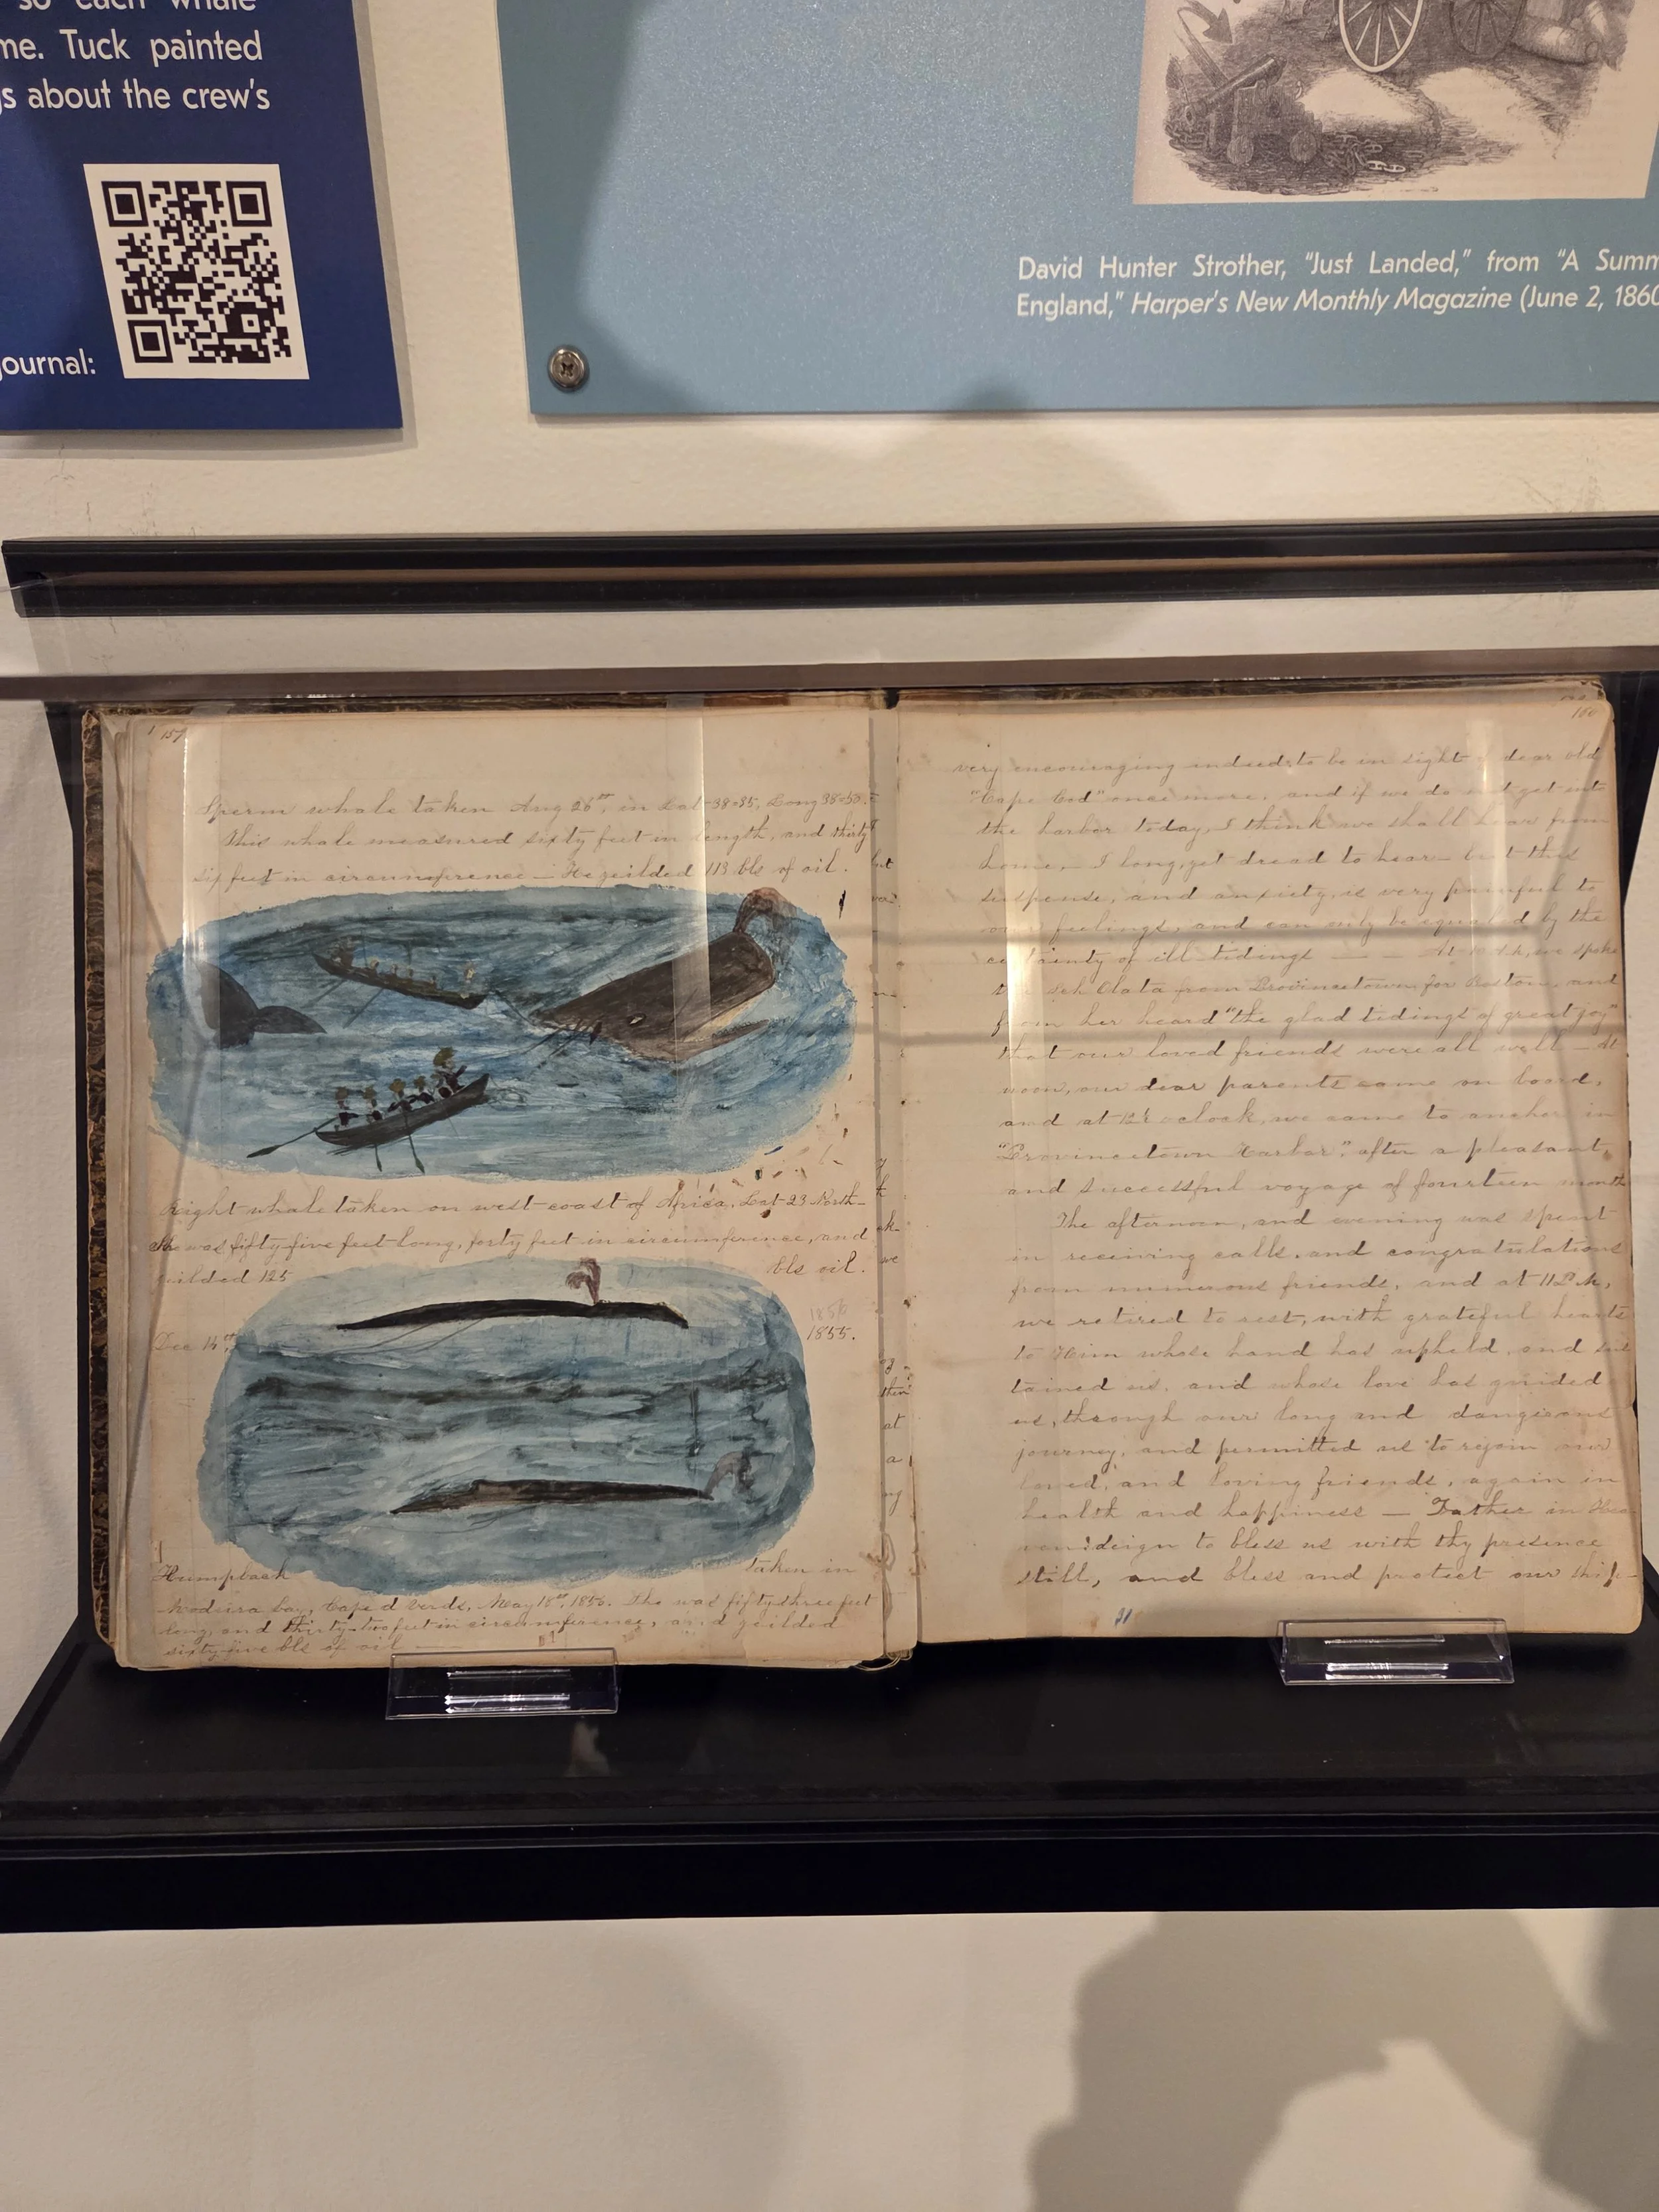 so each whale
me. Tuck painted
s about the crew's
journal:
David Hunter Strother, “Just Landed,” from “A Summ
England,” Harper's New Monthly Magazine (June 2, 1860
157
Sperm whale taken Aug 26th, in Lat 38=35, Long 38=50.
This whale measured sixty feet in length, and thirty
six feet in circumference — He yeilded 113 bls of oil.
Right whale taken on west coast of Africa. Lat 23 North
She was fifty five feet long, forty feet in circumference, and
yeilded 125 bls oil.
1856
Dec 14th, 1855.
Humpback taken in
bay, Cape d Verds, May 18th, 1856. She was fifty three feet
long, and thirty-two feet in circumference, and yeilded
sixty five bls of oil —
160
very encouraging indeed to be in sight of dear old
"Cape Cod" once more, and if we do not get into
the harbor today, I think we shall hear from
home. — I long, yet dread to hear — but this
suspense, and anxiety, is very painful to
our feelings, and can only be equaled by the
certainty of ill tidings — — At 10 A.M, we spoke
the Sch Olata from Provincetown for Boston, and
from her heard "the glad tidings of great joy"
that our loved friends were all well — At
noon, our dear parents came on board,
and at 12½ oclock, we came to anchor in
"Provincetown Harbor", after a pleasant,
and successful voyage of fourteen month
The afternoon, and evening was spent
in receiving calls, and congratulations
from numerous friends, and at 11 P.M,
we retired to rest, with grateful hearts
to Him whose hand has upheld, and sus
tained us, and whose love has guided
us, through our long and dangerous
journey, and permitted us to rejoin our
loved, and loving friends, again in
health and happiness — Father in Hea
ven! deign to bless us with thy presence
still, and bless and protect our ship-
31